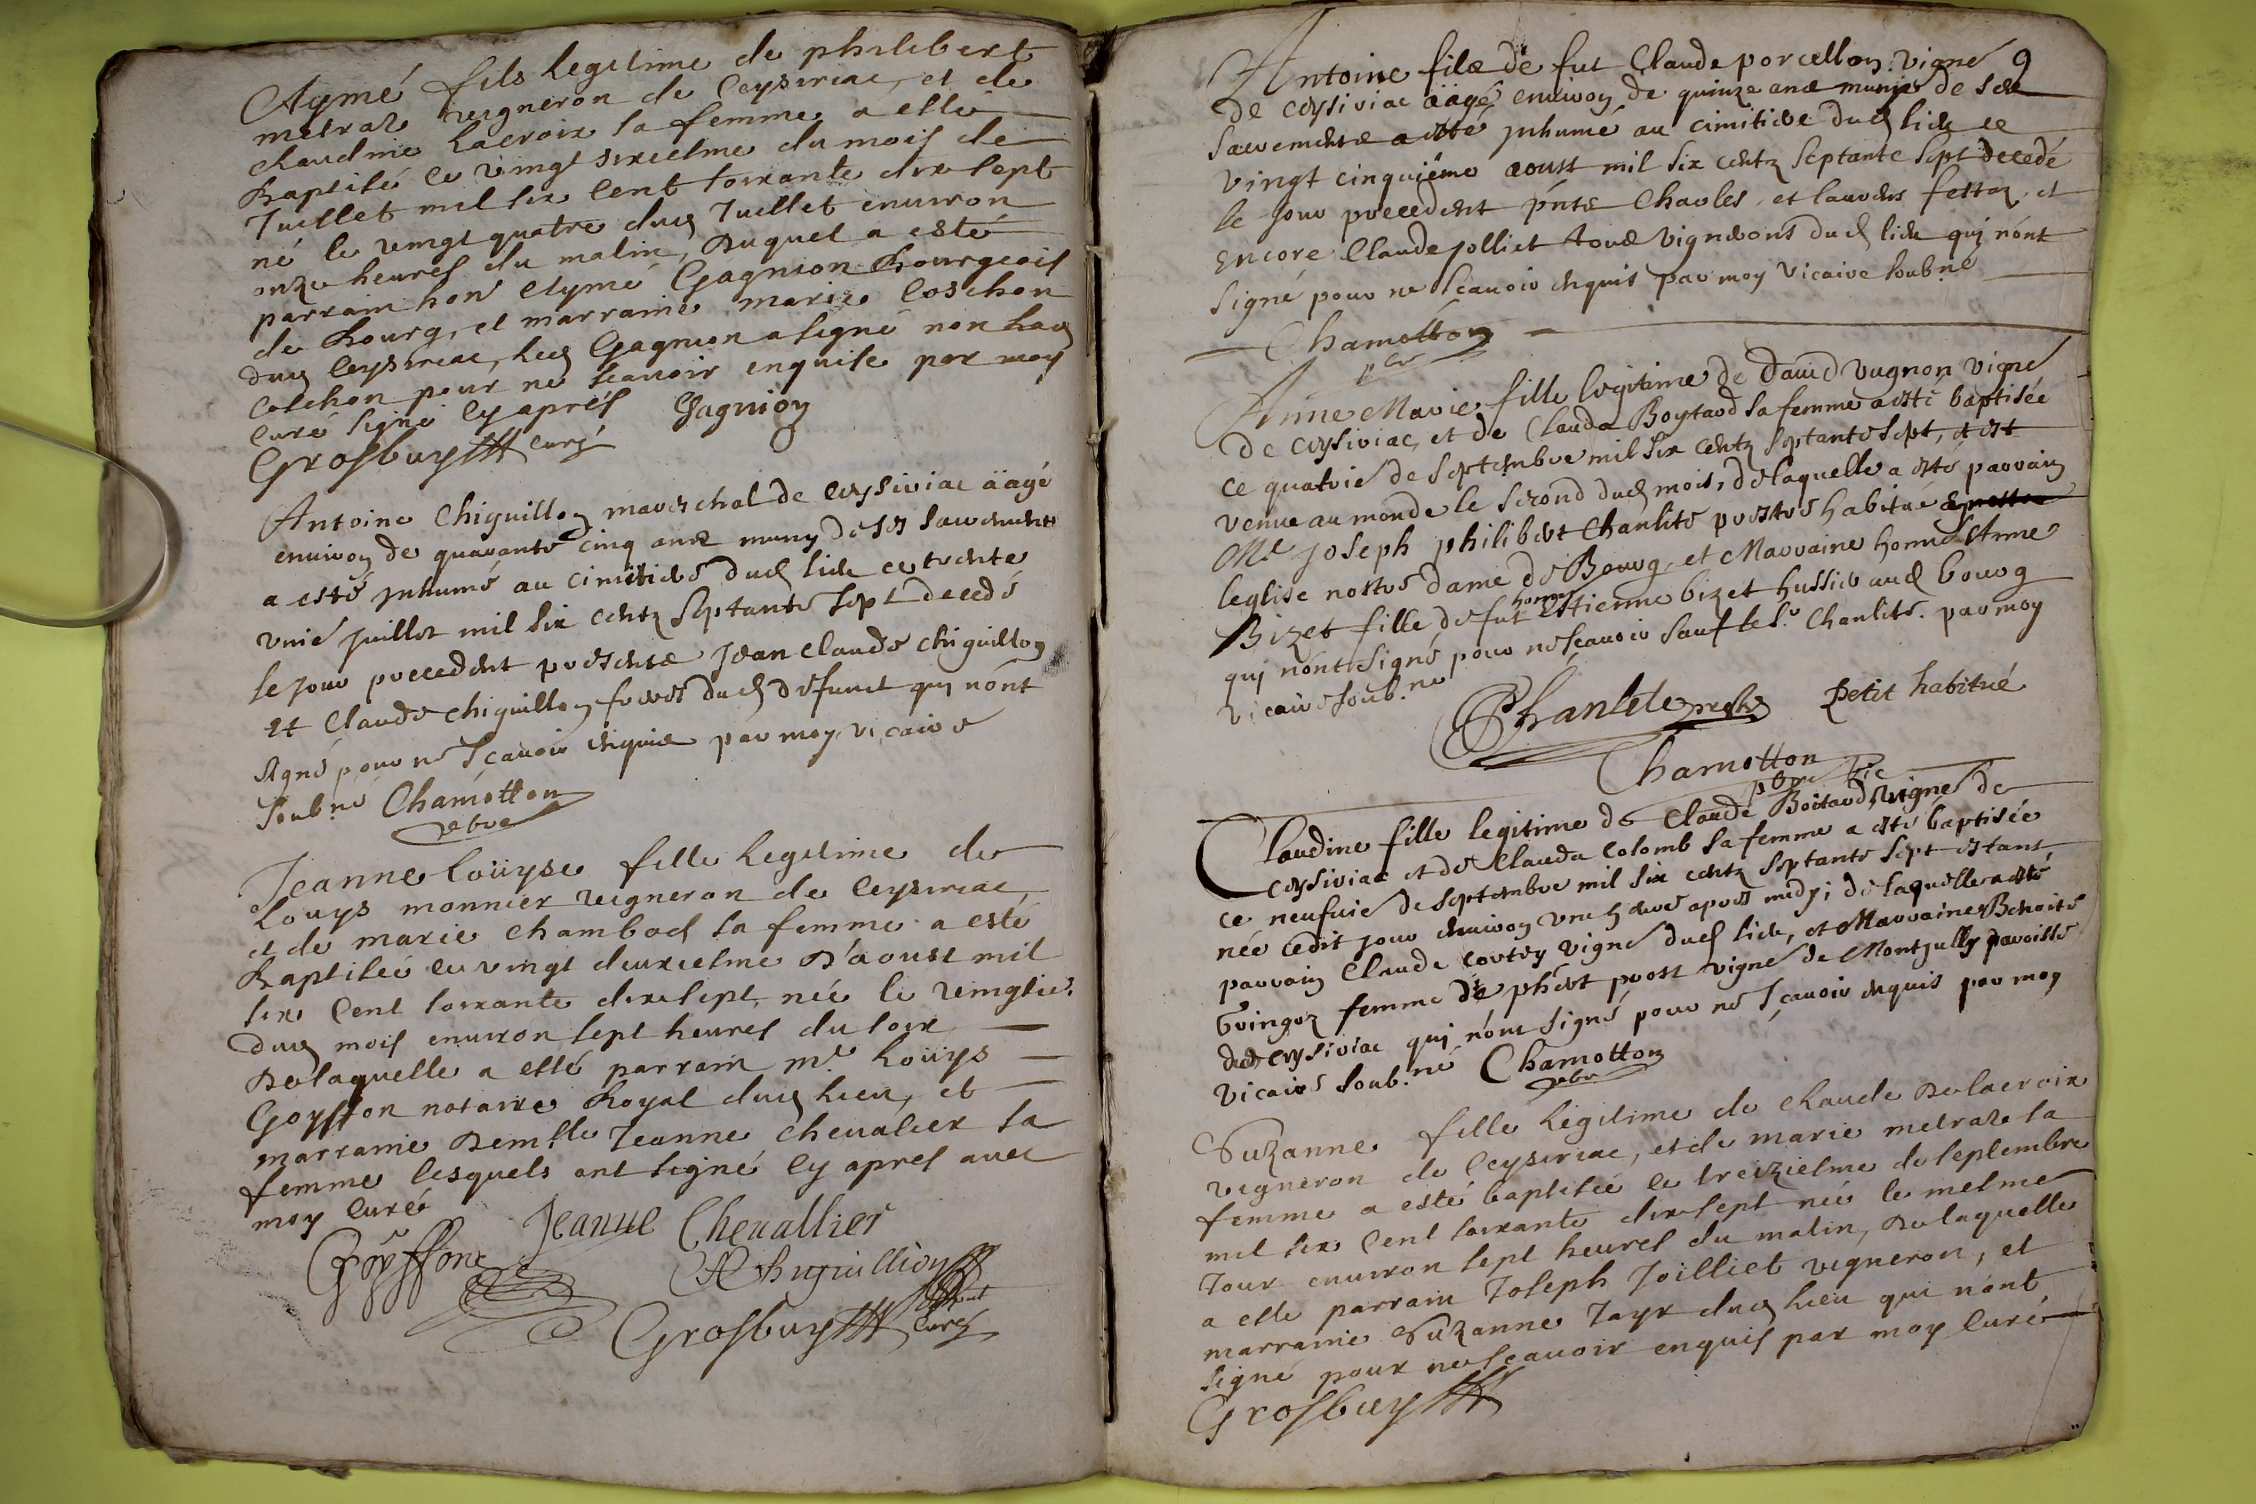 Aymé fils legitime de philibert
metraz vigneron de Ceysiriac, et de
claudine Lacroix sa femme a esté
Baptisé ce vingt sixiesme du mois de
Juillet mil six cent soixante dix sept
né le vingt quatre dud Juillet environ
onze heures du matin, Duquel a esté
parrain hon Aymé Gagnion Bourgeois
de Bourg, et marraine marie Coschon
dud Ceysiriac, led Gagnion a signé non lad
Coschon pour ne scavoir enquise par moy
Curé signé cy aprés Gagnion
Grosbuy Curé
Antoine Chiguillon mareschal de Ceysiriac äagé
environ de quarante cinq ans muny de ses sacrements
a esté inhumé au cimitiere dud lieu ce trente
unié juillet mil six centz septante sept decedé
le jour precedent presents Jean Claude chiguillon
et Claude chiguillon freres dud defunct qui n'ont
signé pour ne scavoir enquis par moy vicaire
soub.né Chamotton
pbre
Jeanne Loüyse fille Legitime de
Louys monnier vigneron de Ceysiriac,
et de marie chambad sa femme a esté
Baptisée ce vingt deuxiesme D'aoust mil
six cent soixante dix sept, née le vingtie.
dud mois environ sept heures du soir
De laquelle a esté parrain mr. Loüys
Goyffon notaire Royal dud lieu, et
marraine Demslle Jeanne chevalier sa
femme lesquels ont signé cy apres avec
moy Curé
Goyffon Jeanne Chevallier
Chiguillion
Grosbuy Curé
Antoine fils de fut Claude porcellon vigné 9
de ceysiriac äagé environ de quinze ans muny de ses
sacrements a esté inhumé au cimitiere dud lieu ce
vingt cinquiéme aoust mil six centz septante sept decedé
le jour precedent pnts Charles, et laurens festaz et
encore Claude jolliet tous vignerons dud lieu qui n'ont
signé pour ne scavoir enquis par moy vicaire soub.né
Chamotton
pbr
Anne Marie fille legitime de david vugnon vigné
de ceysiriac, et de Clauda Boytard sa femme a esté baptisée
ce quatrié de septembre mil six centz septante sept, et est
venue au monde le second dud mois, de laquelle a esté parrain
Mre joseph philibert Chanlite prestre habitué
leglise nostre dame de Bourg, et Marraine honnd Anne
Bizet fille de fut honor Estienne bizet hussier aud bourg
qui n'ont signé pour ne scavoir sauf le Sr Chanlite. par moy
vicaire soub.né
Chanlite presb Petit habitué
Chamotton
pbre vic
Claudine fille legitime de Claude Boitard, vigné de
ceysiriac et de Clauda Colomb sa femme a esté baptisée
ce neufvié de septembre mil six centz septante sept estant
née cedit jour environ une heure apres midy; de laquelle a esté
parrain Claude cortey vigné dud lieu, et Marraine Benoite
Gringoz femme de phert prost vigné de Montjully paroisse
dud ceysiriac qui n'ont signé pour ne scavoir enquis par moy
vicaire soub.né Chamotton
pbre
Suzanne fille Legitime de Claude Delacroix
vigneron de Ceysiriac, et de marie metraz sa
femme a esté baptisée ce treiziesme de septembre
mil six cent soixante dix sept née le mesme
Jour environ sept heures du matin, De laquelle
a esté parrain Joseph Joilliet vigneron, et
marraine Suzanne Tayr dud lieu qui n'ont
signé pour ne scavoir enquis par moy Curé
Grosbuy